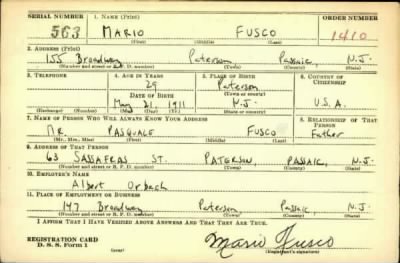 SERIAL NUMBER 1. NAME (Print) ORDER NUMBER
563 MARIO FUSCO 1410
(First) (Middle) (Last)
2. ADDRESS (Print)
155 Broadway Paterson Passaic N.J.
(Number and street or R. F. D. number) (Town) (County) (State)
3. TELEPHONE 4. AGE IN YEARS 5. PLACE OF BIRTH 6. COUNTRY OF CITIZENSHIP
29 Paterson
(Town or county)
DATE OF BIRTH
May 21 1911 N.J. U.S.A.
(Exchange) (Number) (Mo.) (Day) (Yr.) (State or country)
7. NAME OF PERSON WHO WILL ALWAYS KNOW YOUR ADDRESS 8. RELATIONSHIP OF THAT PERSON
MR. PASQUALE FUSCO Father
(Mr., Mrs., Miss) (First) (Middle) (Last)
9. ADDRESS OF THAT PERSON
63 SASSAFRAS ST. PATERSON, PASSAIC, N.J.
(Number and street or R. F. D. number) (Town) (County) (State)
10. EMPLOYER'S NAME
Albert Orbach
11. PLACE OF EMPLOYMENT OR BUSINESS
147 Broadway Paterson Passaic N.J.
(Number and street or R. F. D. number) (Town) (County) (State)
I AFFIRM THAT I HAVE VERIFIED ABOVE ANSWERS AND THAT THEY ARE TRUE.
REGISTRATION CARD
D. S. S. Form 1
Mario Fusco
(Registrant's signature)